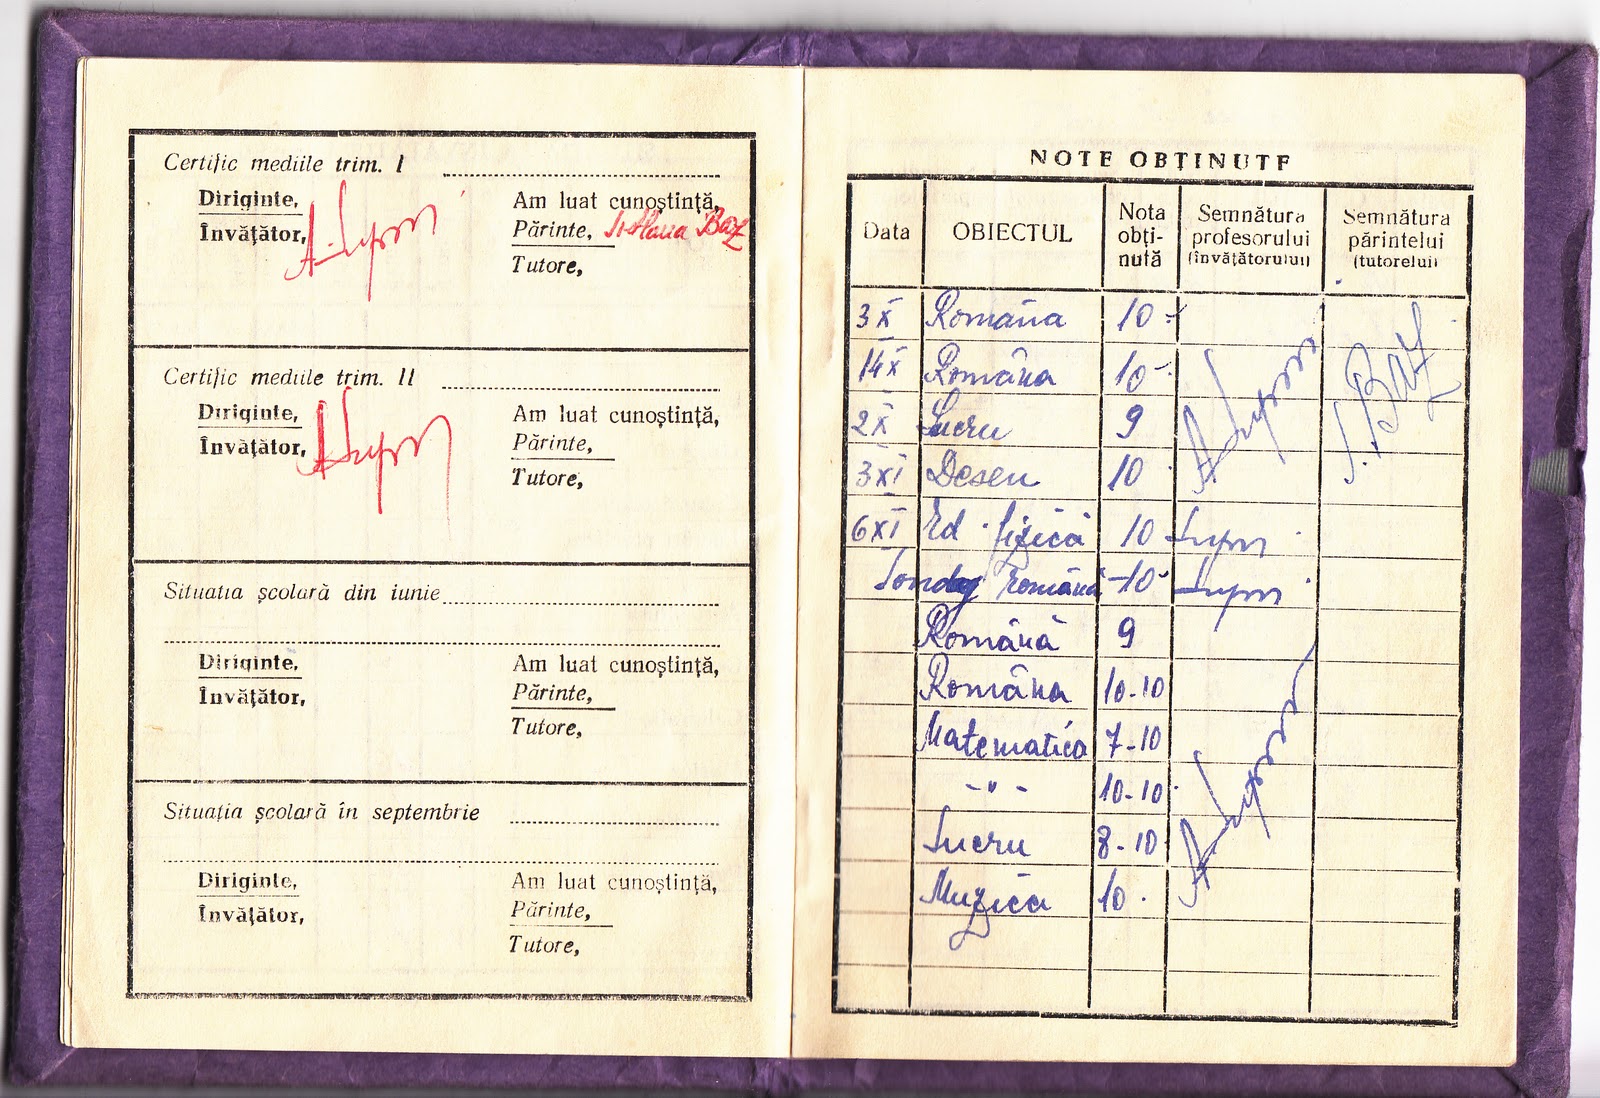 Certific mediile trim. I
Diriginte,
Învățător,
Am luat cunoștință,
Părinte,
Baz
Tutore,
Certific mediile trim. II
Diriginte,
Învățător,
Am luat cunoștință,
Părinte,
Tutore,
Situația școlară din iunie
Diriginte,
Învățător,
Am luat cunoștință,
Părinte,
Tutore,
Situația școlară în septembrie
Diriginte,
Învățător,
Am luat cunoștință,
Părinte,
Tutore,
NOTE OBȚINUTE
Data OBIECTUL Nota obți-nută Semnătura profesorului (învățătorului) Semnătura părintelui (tutorelui)
3 X Româna 10
14 X Româna 10
2 X Lucru 9
3 XI Desen 10
I. Baz
6 XI Ed. fizică 10
română 10
Română 9
Româna 10-10
Matematica 7-10
-"- 10-10
Lucru 8-10
Muzica 10